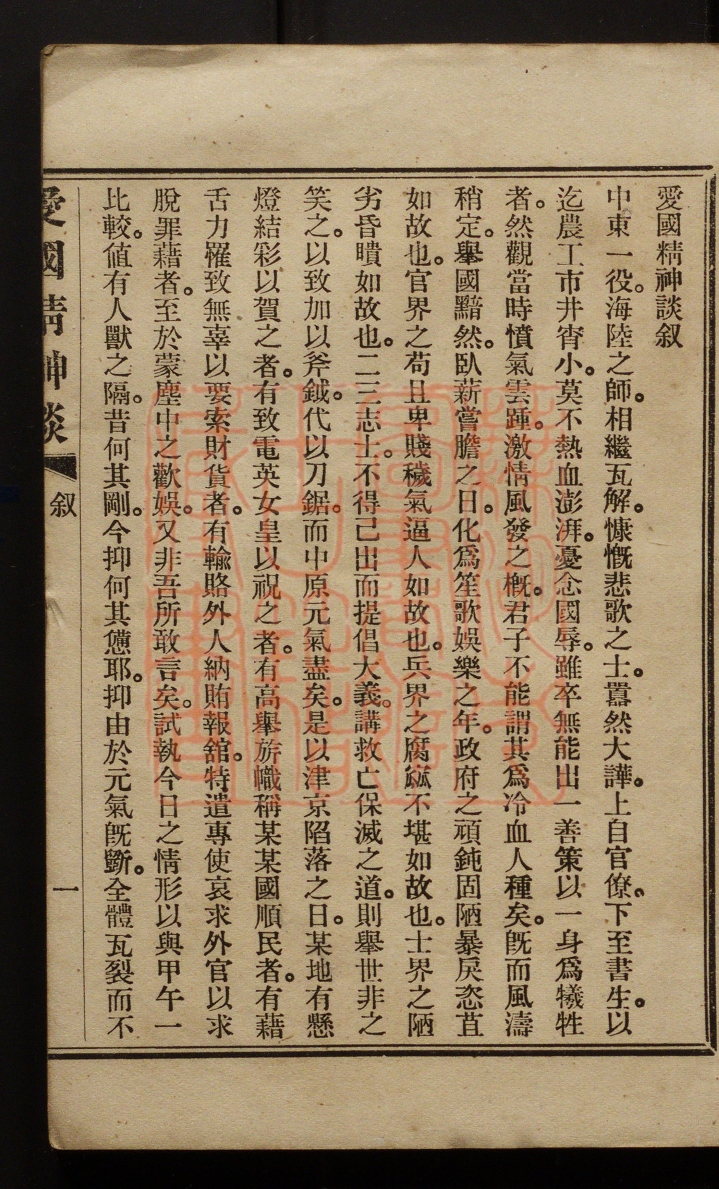 愛國精神談叙
中東一役。海陸之師。相繼瓦解。慷慨悲歌之士。囂然大譁。上自官僚。下至書生。以
迄農工市井宵小。莫不熱血澎湃。憂念國辱。雖卒無能出一善策以一身爲犧牲
者。然觀當時憤氣雲踵。激情風發之概。君子不能謂其爲冷血人種矣。旣而風濤
稍定。舉國黯然。臥薪嘗膽之日。化爲笙歌娛樂之年。政府之頑鈍固陋暴戾恣苴
如故也。官界之苟且卑賤穢氣逼人如故也。兵界之腐窳不堪如故也。士界之陋
劣昏瞶如故也。二三志士。不得已出而提倡大義。講救亡保滅之道。則舉世非之
笑之。以致加以斧鉞。代以刀鋸。而中原元氣盡矣。是以津京陷落之日。某地有懸
燈結彩以賀之者。有致電英女皇以祝之者。有高舉旂幟稱某某國順民者。有藉
舌力羅致無辜以要索財貨者。有輸賂外人納賄報舘。特遣專使哀求外官以求
脫罪藉者。至於蒙塵中之歡娛。又非吾所敢言矣。試執今日之情形以與甲午一
比較。値有人獸之隔。昔何其剛。今抑何其憊耶。抑由於元氣旣斷。全體瓦裂而不
愛國精神談
叙
一